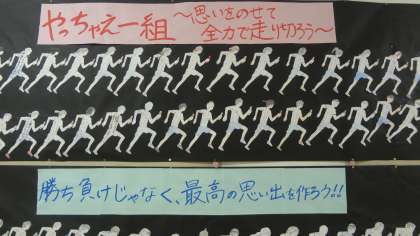 やっちゃえ一組 〜思いをのせて
全力で走り切ろう〜
勝ち負けじゃなく、最高の思い出を作ろう!!